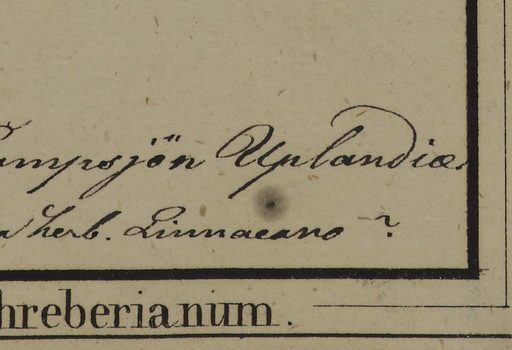 ampsjön Uplandiæ.
herb. Linnaeano ?
hreberianum.